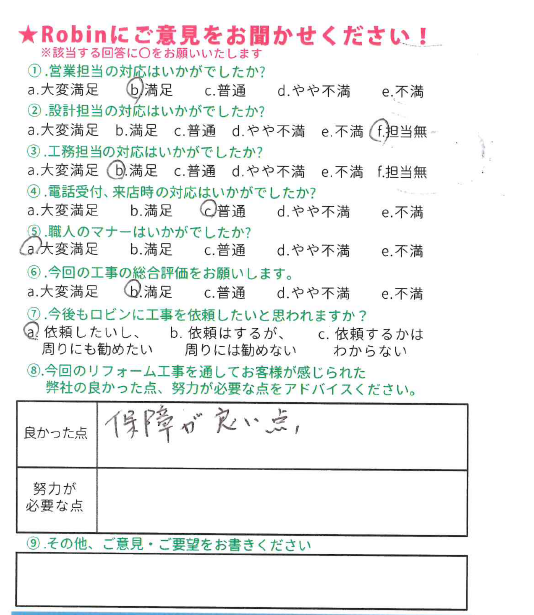 ★Robinにご意見をお聞かせください！
※該当する回答に〇をお願いいたします
①.営業担当の対応はいかがでしたか?
a.大変満足 b.満足 c.普通 d.やや不満 e.不満
②.設計担当の対応はいかがでしたか?
a.大変満足 b.満足 c.普通 d.やや不満 e.不満 f.担当無
③.工務担当の対応はいかがでしたか?
a.大変満足 b.満足 c.普通 d.やや不満 e.不満 f.担当無
④.電話受付、来店時の対応はいかがでしたか?
a.大変満足 b.満足 c.普通 d.やや不満 e.不満
⑤.職人のマナーはいかがでしたか?
a.大変満足 b.満足 c.普通 d.やや不満 e.不満
⑥.今回の工事の総合評価をお願いします。
a.大変満足 b.満足 c.普通 d.やや不満 e.不満
⑦.今後もロビンに工事を依頼したいと思われますか？
a. 依頼したいし、 b. 依頼はするが、 c. 依頼するかは
周りにも勧めたい 周りには勧めない わからない
⑧.今回のリフォーム工事を通してお客様が感じられた
弊社の良かった点、努力が必要な点をアドバイスください。
良かった点 保障が良い点,
努力が
必要な点
⑨.その他、ご意見・ご要望をお書きください